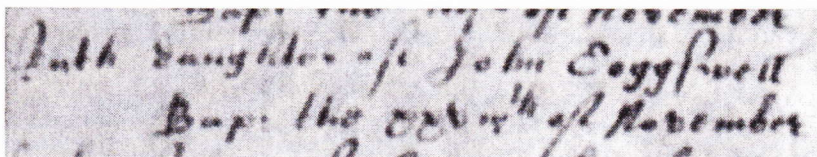 Bap: the of November
Ruth daughter of John Coggswell
Bap: the xxvith of November